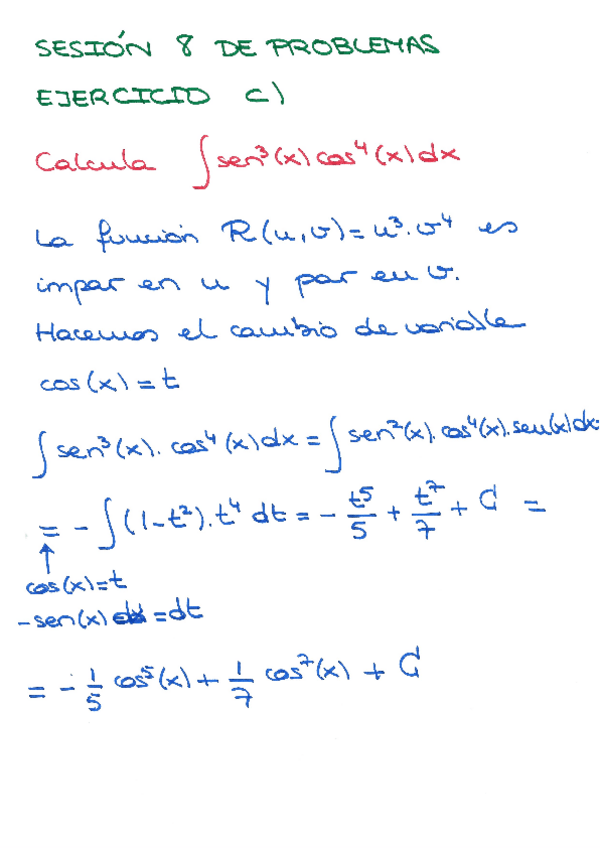 SESIÓN 8 DE PROBLEMAS
EJERCICIO C)
Calcula ∫sen³(x)cos⁴(x)dx
La función R(u,v)=u³·v⁴ es
impar en u y par en v.
Hacemos el cambio de variable
cos(x)=t
∫sen³(x).cos⁴(x)dx=∫sen²(x).cos⁴(x).sen(x)dx=
=-∫(1-t²).t⁴dt=-t⁵/5+t⁷/7+C=
↑
cos(x)=t
-sen(x)dx=dt
=-1/5 cos⁵(x)+1/7 cos⁷(x)+C